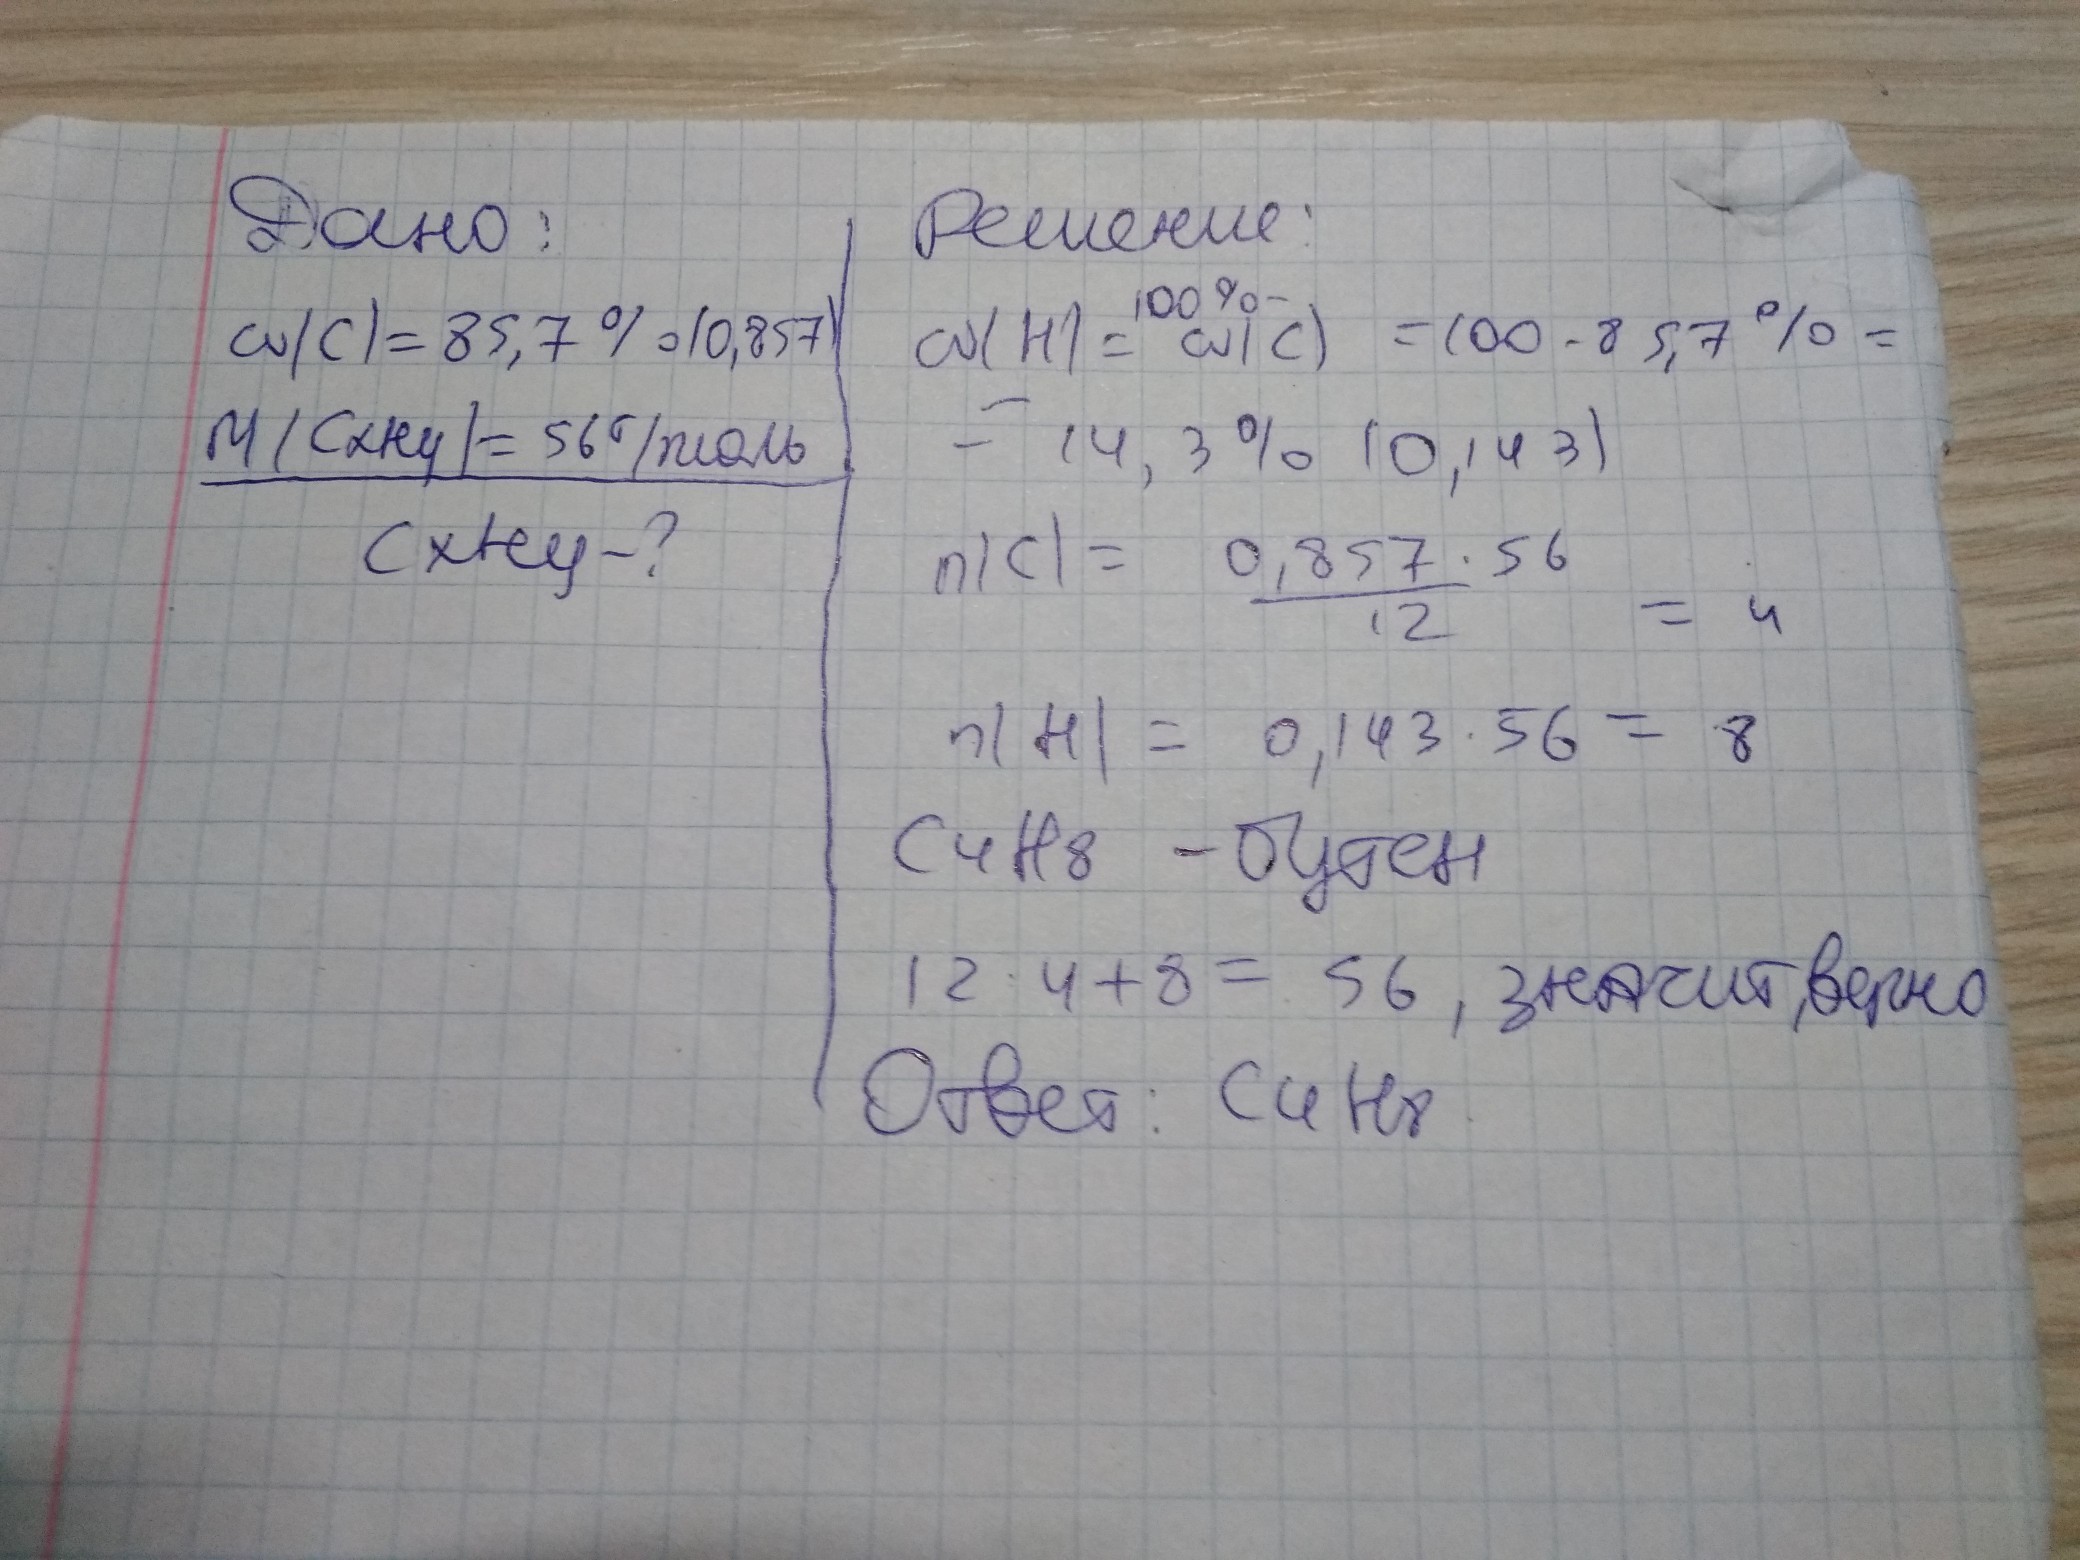 Дано:
ω(C) = 85,7% (0,857)
M(CxHy) = 56г/моль
CxHy - ?
Решение:
ω(H) = 100% - ω(C) = 100 - 85,7% =
= 14,3% (0,143)
n(C) = 0,857 · 56 / 12 = 4
n(H) = 0,143 · 56 = 8
C4H8 - бутен
12 · 4 + 8 = 56, значит, верно
Ответ: C4H8.